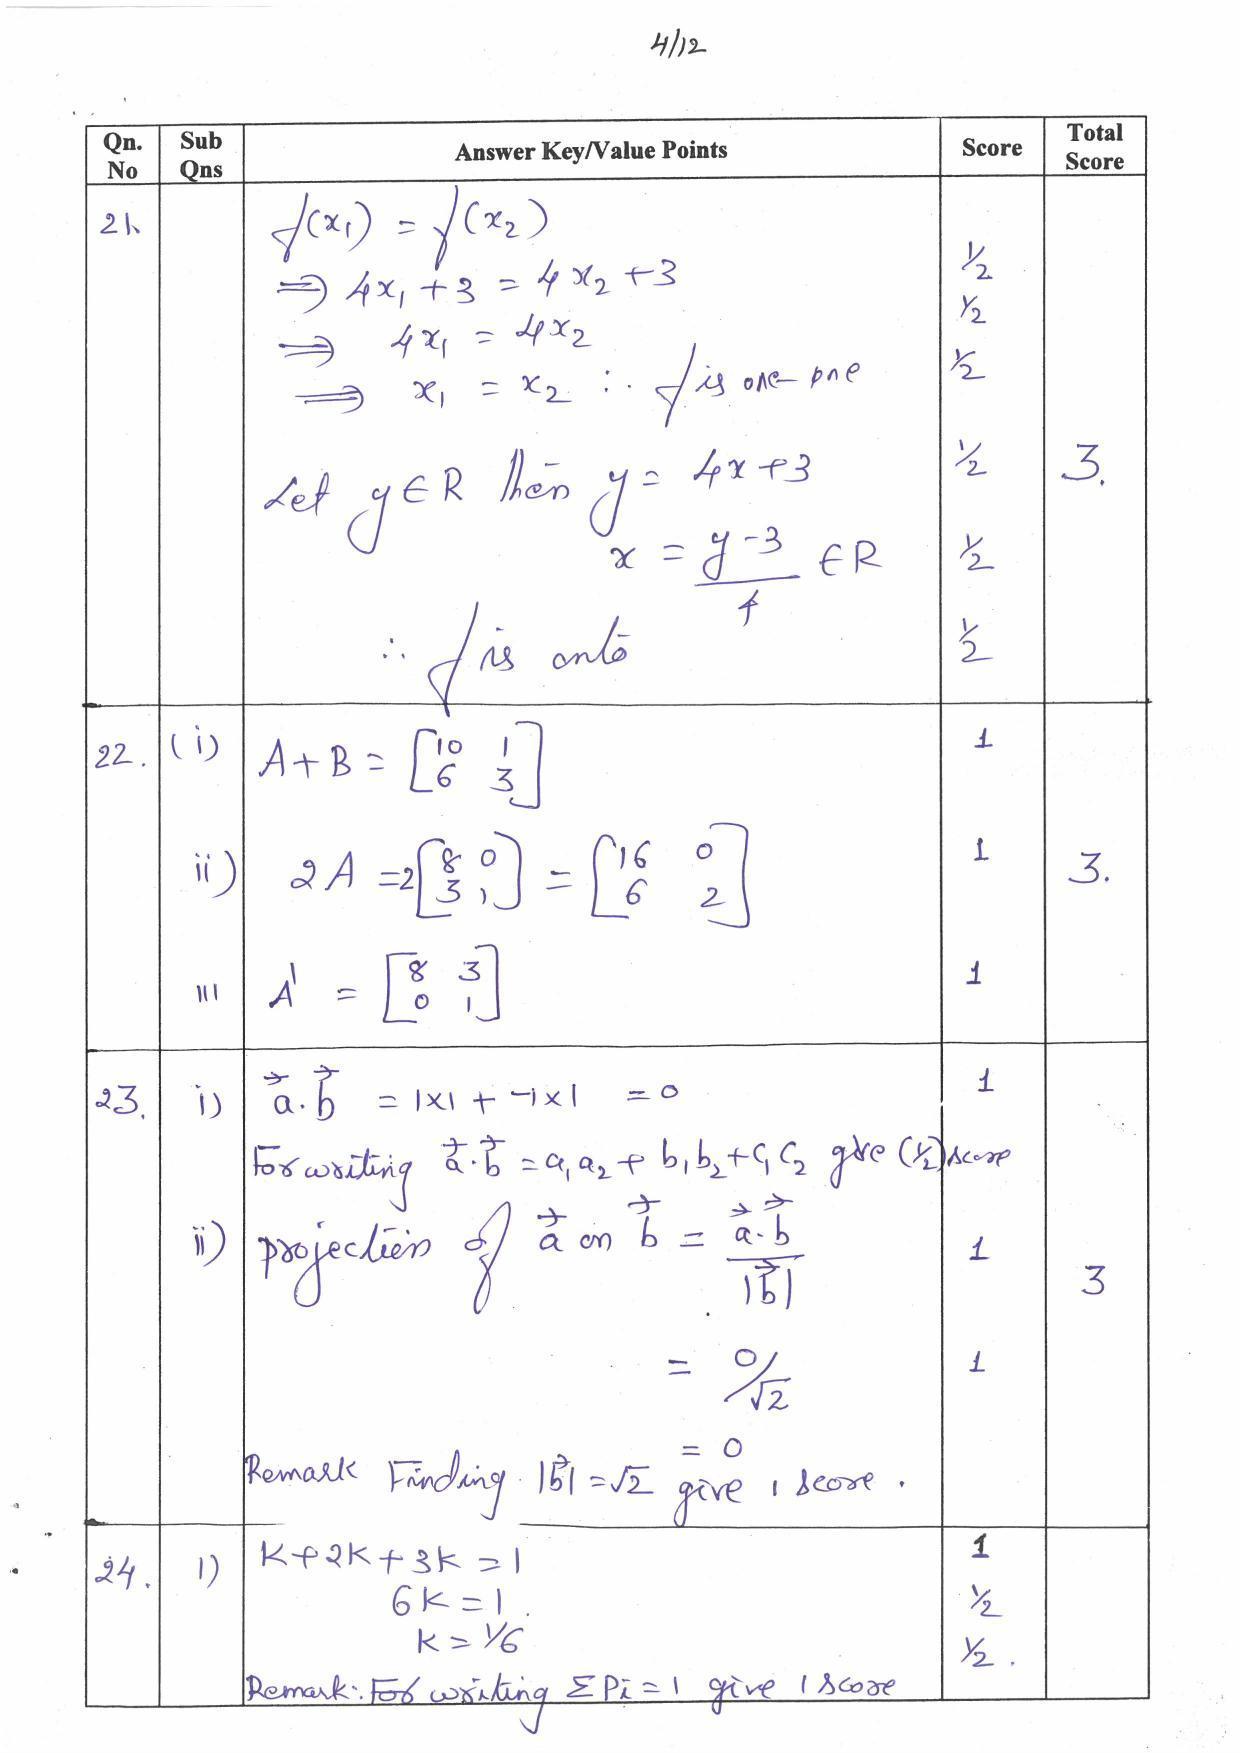 4/12
Qn. No | Sub Qns | Answer Key/Value Points | Score | Total Score
21. f(x₁) = f(x₂)
⇒ 4x₁ + 3 = 4x₂ + 3 ½
⇒ 4x₁ = 4x₂ ½
⇒ x₁ = x₂ ∴ f is one-one ½
Let y ∈ R then y = 4x + 3 ½ 3.
x = (y - 3)/4 ∈ R ½
∴ f is onto ½
22. (i) A + B = [10 1; 6 3] 1
ii) 2A = 2[8 0; 3 1] = [16 0; 6 2] 1 3.
iii A' = [8 3; 0 1] 1
23. i) a⃗.b⃗ = 1×1 + -1×1 = 0 1
For writing a⃗.b⃗ = a₁a₂ + b₁b₂ + c₁c₂ give (½) score
ii) projection of a⃗ on b⃗ = a⃗.b⃗/|b⃗| 1 3
= 0/√2 1
= 0
Remark Finding |b⃗| = √2 give 1 score.
24. 1) K + 2K + 3K = 1 1
6K = 1. ½
K = 1/6 ½.
Remark: For writing ΣPi = 1 give 1 score